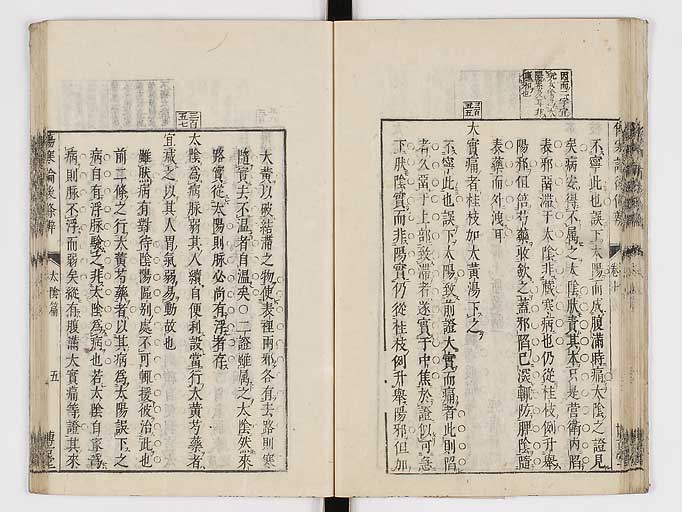 不寧此也誤下太陽而成腹滿時痛太陰之證見
矣病安得不属之太陰狀責其本只是營衛内陷
表邪畱滯于太陰非臟寒病也仍從桂枝例升舉
陽邪但倍芍藥収歛之蓋邪陷已深輒防脾陰隨
表藥而外洩耳
大實痛者桂枝加大黄湯下之
不寧此也誤下太陽致前證大實而痛者此則陷
者久畱于上部致滯者遂實于中焦於證似可急
下肰陰實而非陽實仍從桂枝例升舉陽邪但加
大黄以破結滯之物使表裡兩邪各有去路則寒
隨實去不温者自温矣○二證雖属之太陰然來
路實從太陽則脉必尚有浮者存
三百
五七
太陰為病脉弱其人續自便利設當行大黄芍藥者
宜减之以其人胃氣弱易動故也
雖肰病有對待陰陽區别處不可輒援彼治此也
前二條之行大黄芍藥者以其病為太陽誤下之
病自有浮脉驗之非太陰為病也若太陰自家為
病則脉不浮而弱矣縱有腹滿大實痛等證其來
傷寒論後條辨
太陰篇
五